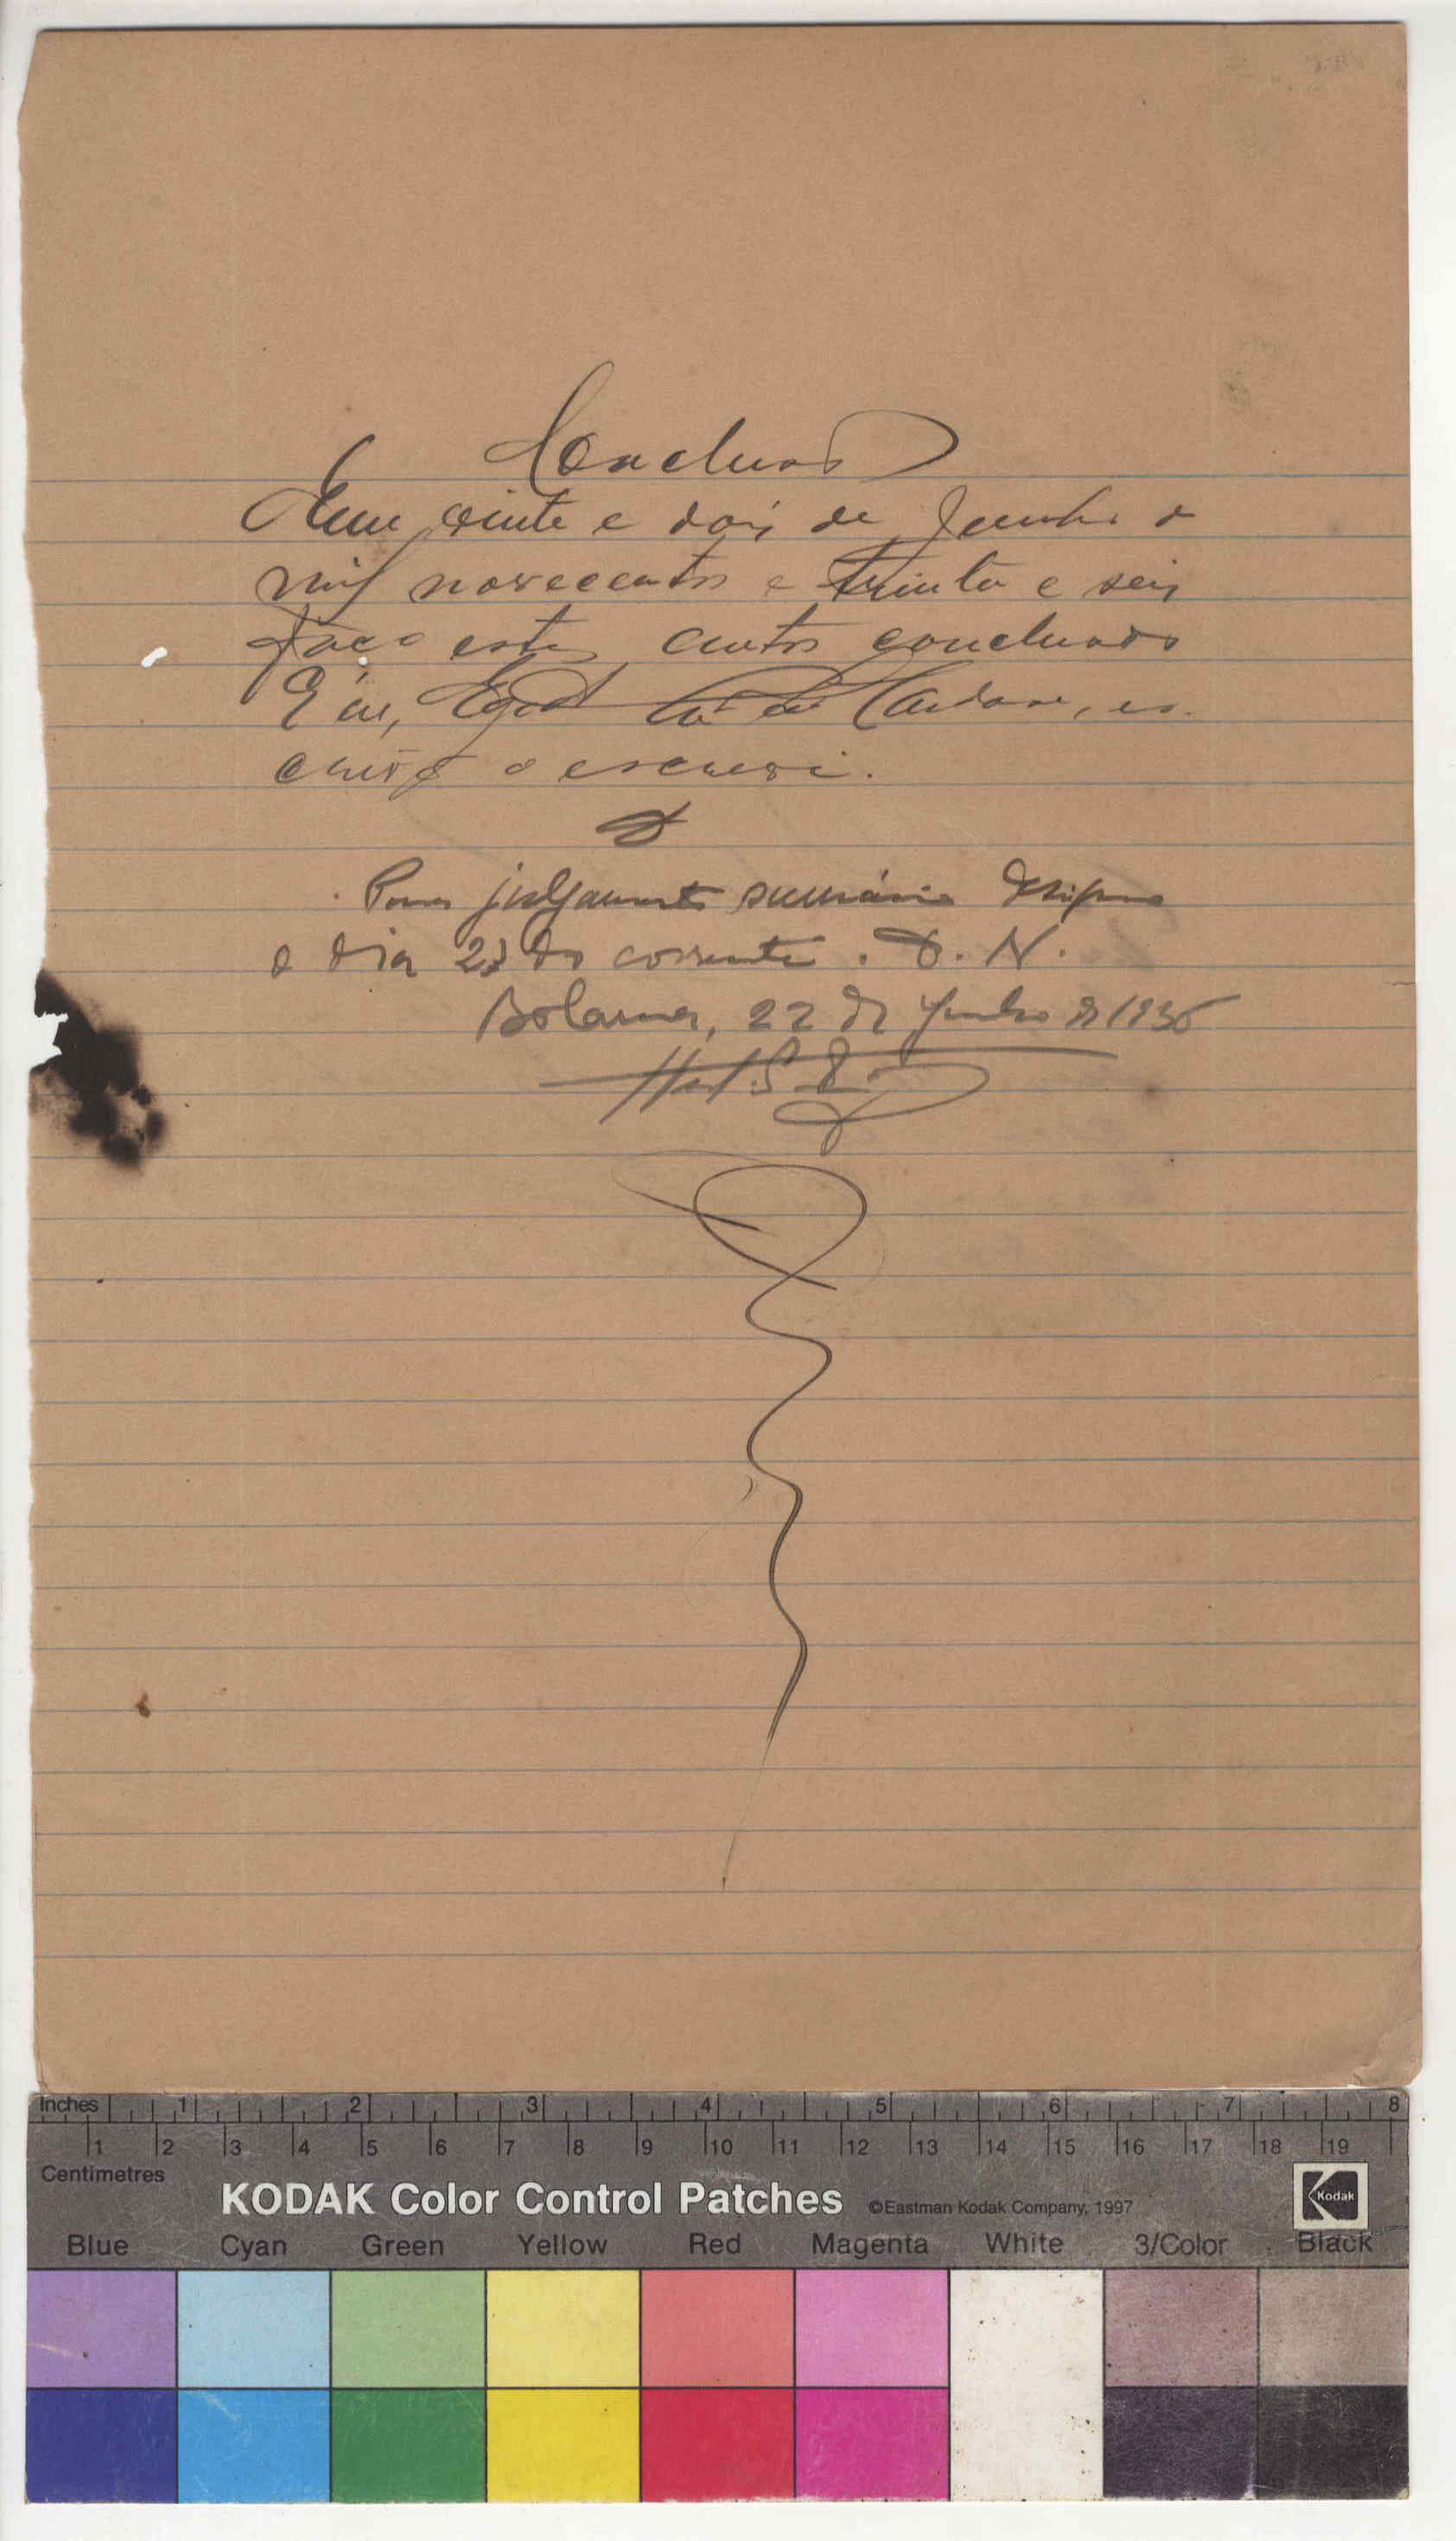 Conclusos
Em vinte e dois de Junho d
mil novecentos e trinta e seis
faço estes autos conclusos
E eu, Cardoso, es-
crivão o escrevi.
Para julgamento sumário designo
o dia 23 do corrente. D. N.
Bolama, 22 de Junho de 1936
Inches 1 2 3 4 5 6 7 8
1 2 3 4 5 6 7 8 9 10 11 12 13 14 15 16 17 18 19
Centimetres
KODAK Color Control Patches ©Eastman Kodak Company, 1997 Kodak
Blue Cyan Green Yellow Red Magenta White 3/Color Black